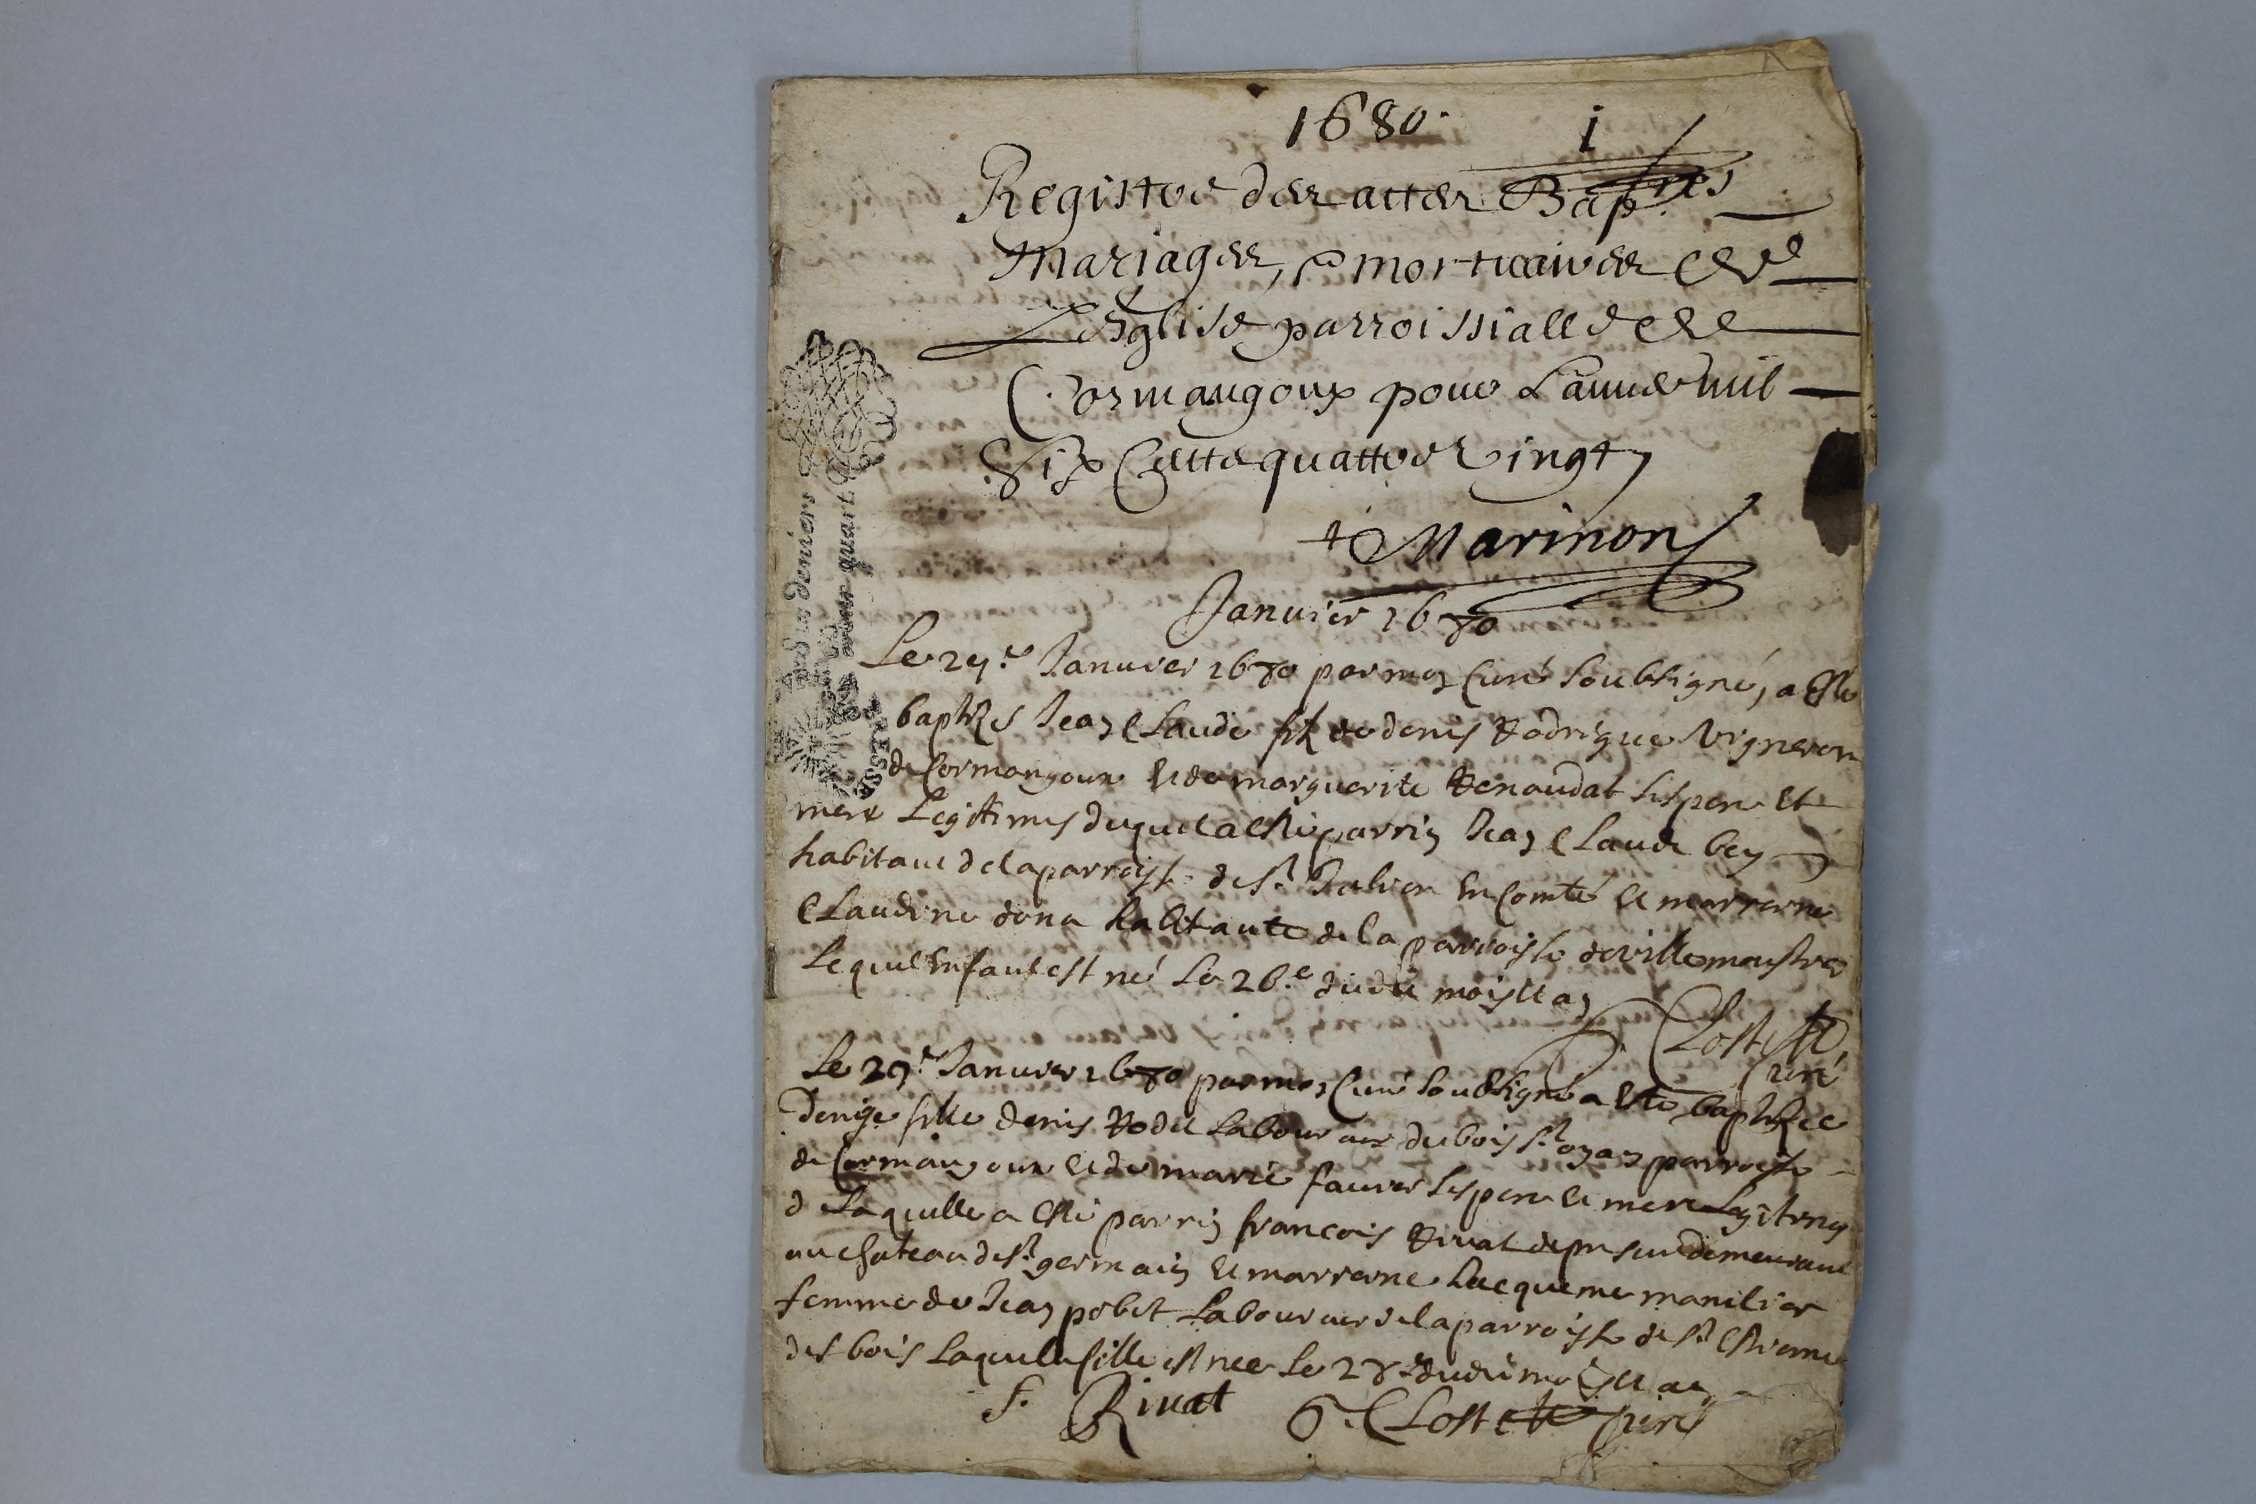 1680.
1
Registre des actes Bap.mes
Mariages, & mortuaires de
L'Eglise parroissialle de
Cormangoux pour L'année mil
Six Cents quattre Vingt
Marinon
Janvier 1680
Le 27.e Janvier 1680 par moy Curé soubsigné, a esté
baptizé Jean Claude filz de denis Rodrigue Vigneron
de Cormangoux et de marguerite Renaudat ses pere et
mere Legitimes duquel a esté parrin Jean Claude bey
habitant de la parroisse de St. Julien en Comté et marrenne
Claudine dona habitante de la parroisse de villemoustier
Lequel Enfant est né le 26.e dudit mois et an
Clostette
Curé
Le 29.e Janvier 1680 par moy Curé soubsigné a esté baptizée
denize fille denis Rodet Laboureur du bois St. oyan parroisse
de Cormangoux et de marie faurer ses pere et mere Legitimes
de Laquelle a esté parrin francois Rivat demeurant
au chateau de St. germain et marrenne Jacqueme manilier
femme de Jean pobet Laboureur de la parroisse de St. Estienne
des bois Laquelle fille est nee le 28.e dudit mois et an
f. Rivat
G. Clostette Curé
deniers
quart
BRESSE